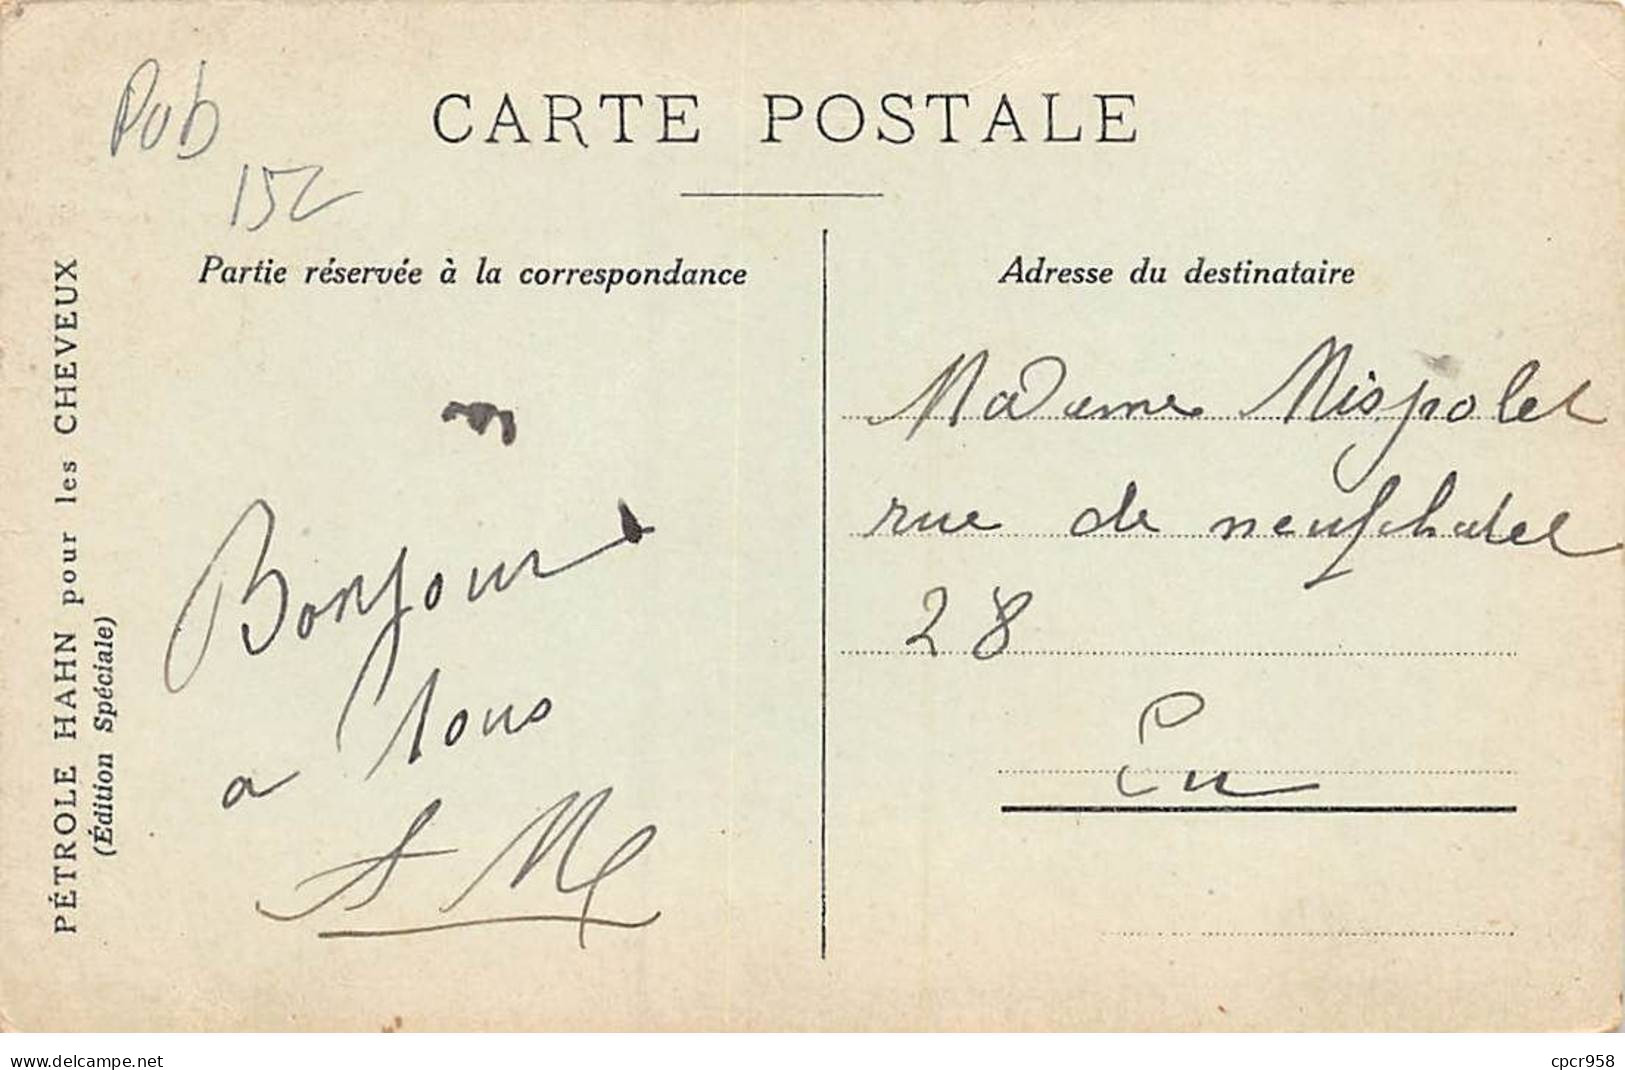 Pub
152
CARTE POSTALE
PÉTROLE HAHN pour les CHEVEUX
(Édition Spéciale)
Partie réservée à la correspondance
Bonjour
a tous
AM
Adresse du destinataire
Madame Mispolet
rue de neufchatel
28
Eu
www.delcampe.net
cpcr958